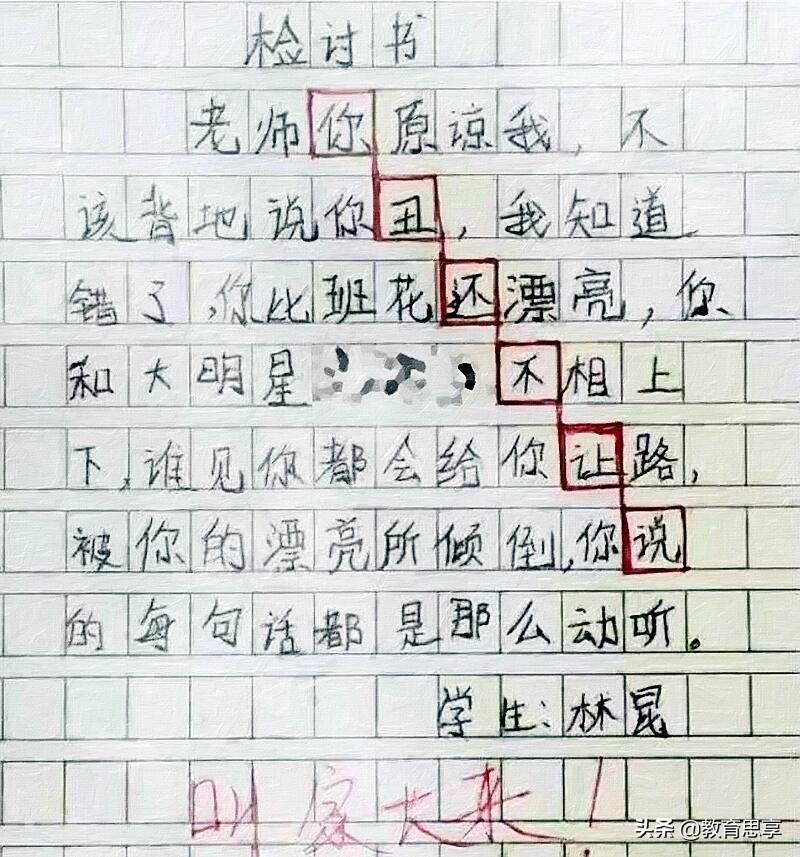 检讨书
老师你原谅我，不
该背地说你丑，我知道
错了，你比班花还漂亮，你
和大明星 不相上
下，谁见你都会给你让路，
被你的漂亮所倾倒，你说
的每句话都是那么动听。
学生：林昆
叫家大来！
头条 @教育思享